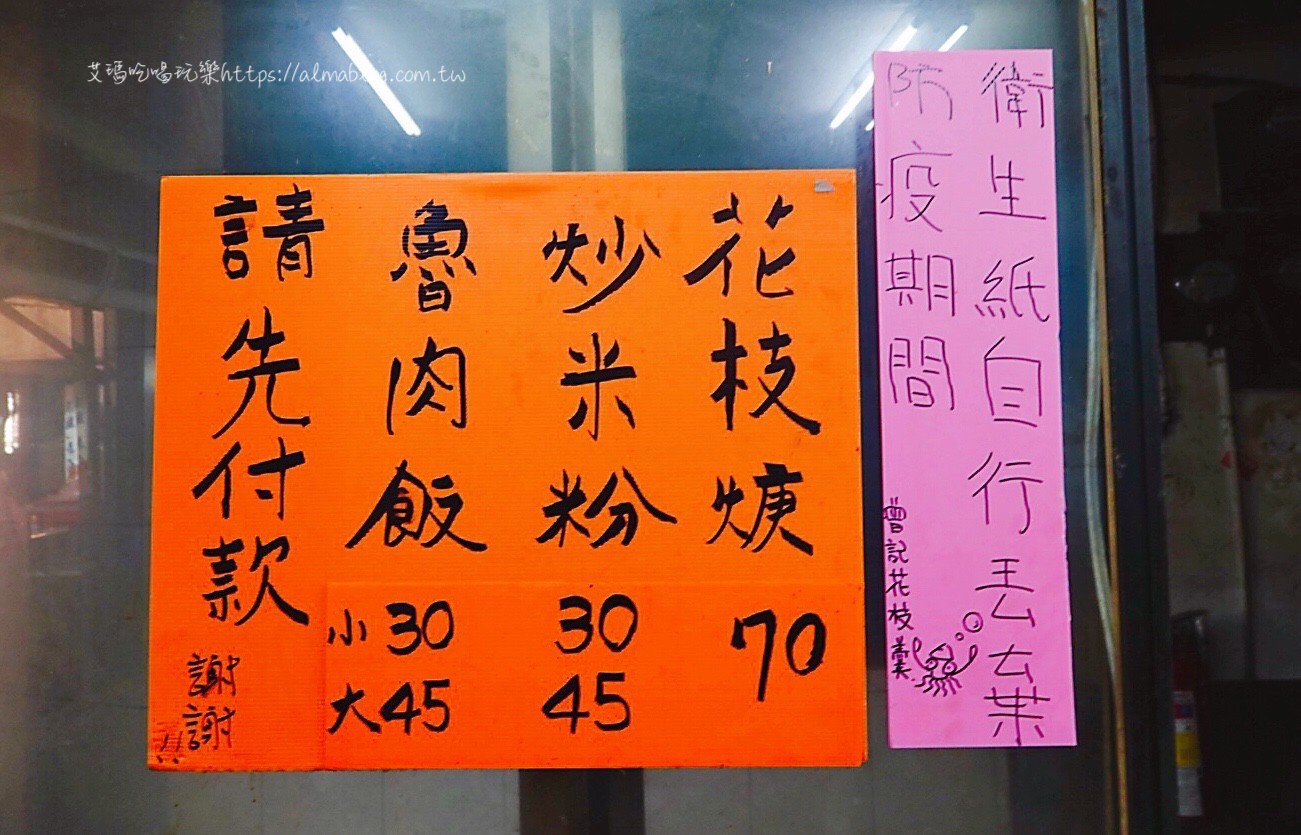 艾瑪吃喝玩樂https://almablog.com.tw
花枝焿 70
炒米粉 30 45
魯肉飯 小30 大45
請先付款
謝謝!!
衛生紙自行丟去葉
防疫期間
曾記花枝羹